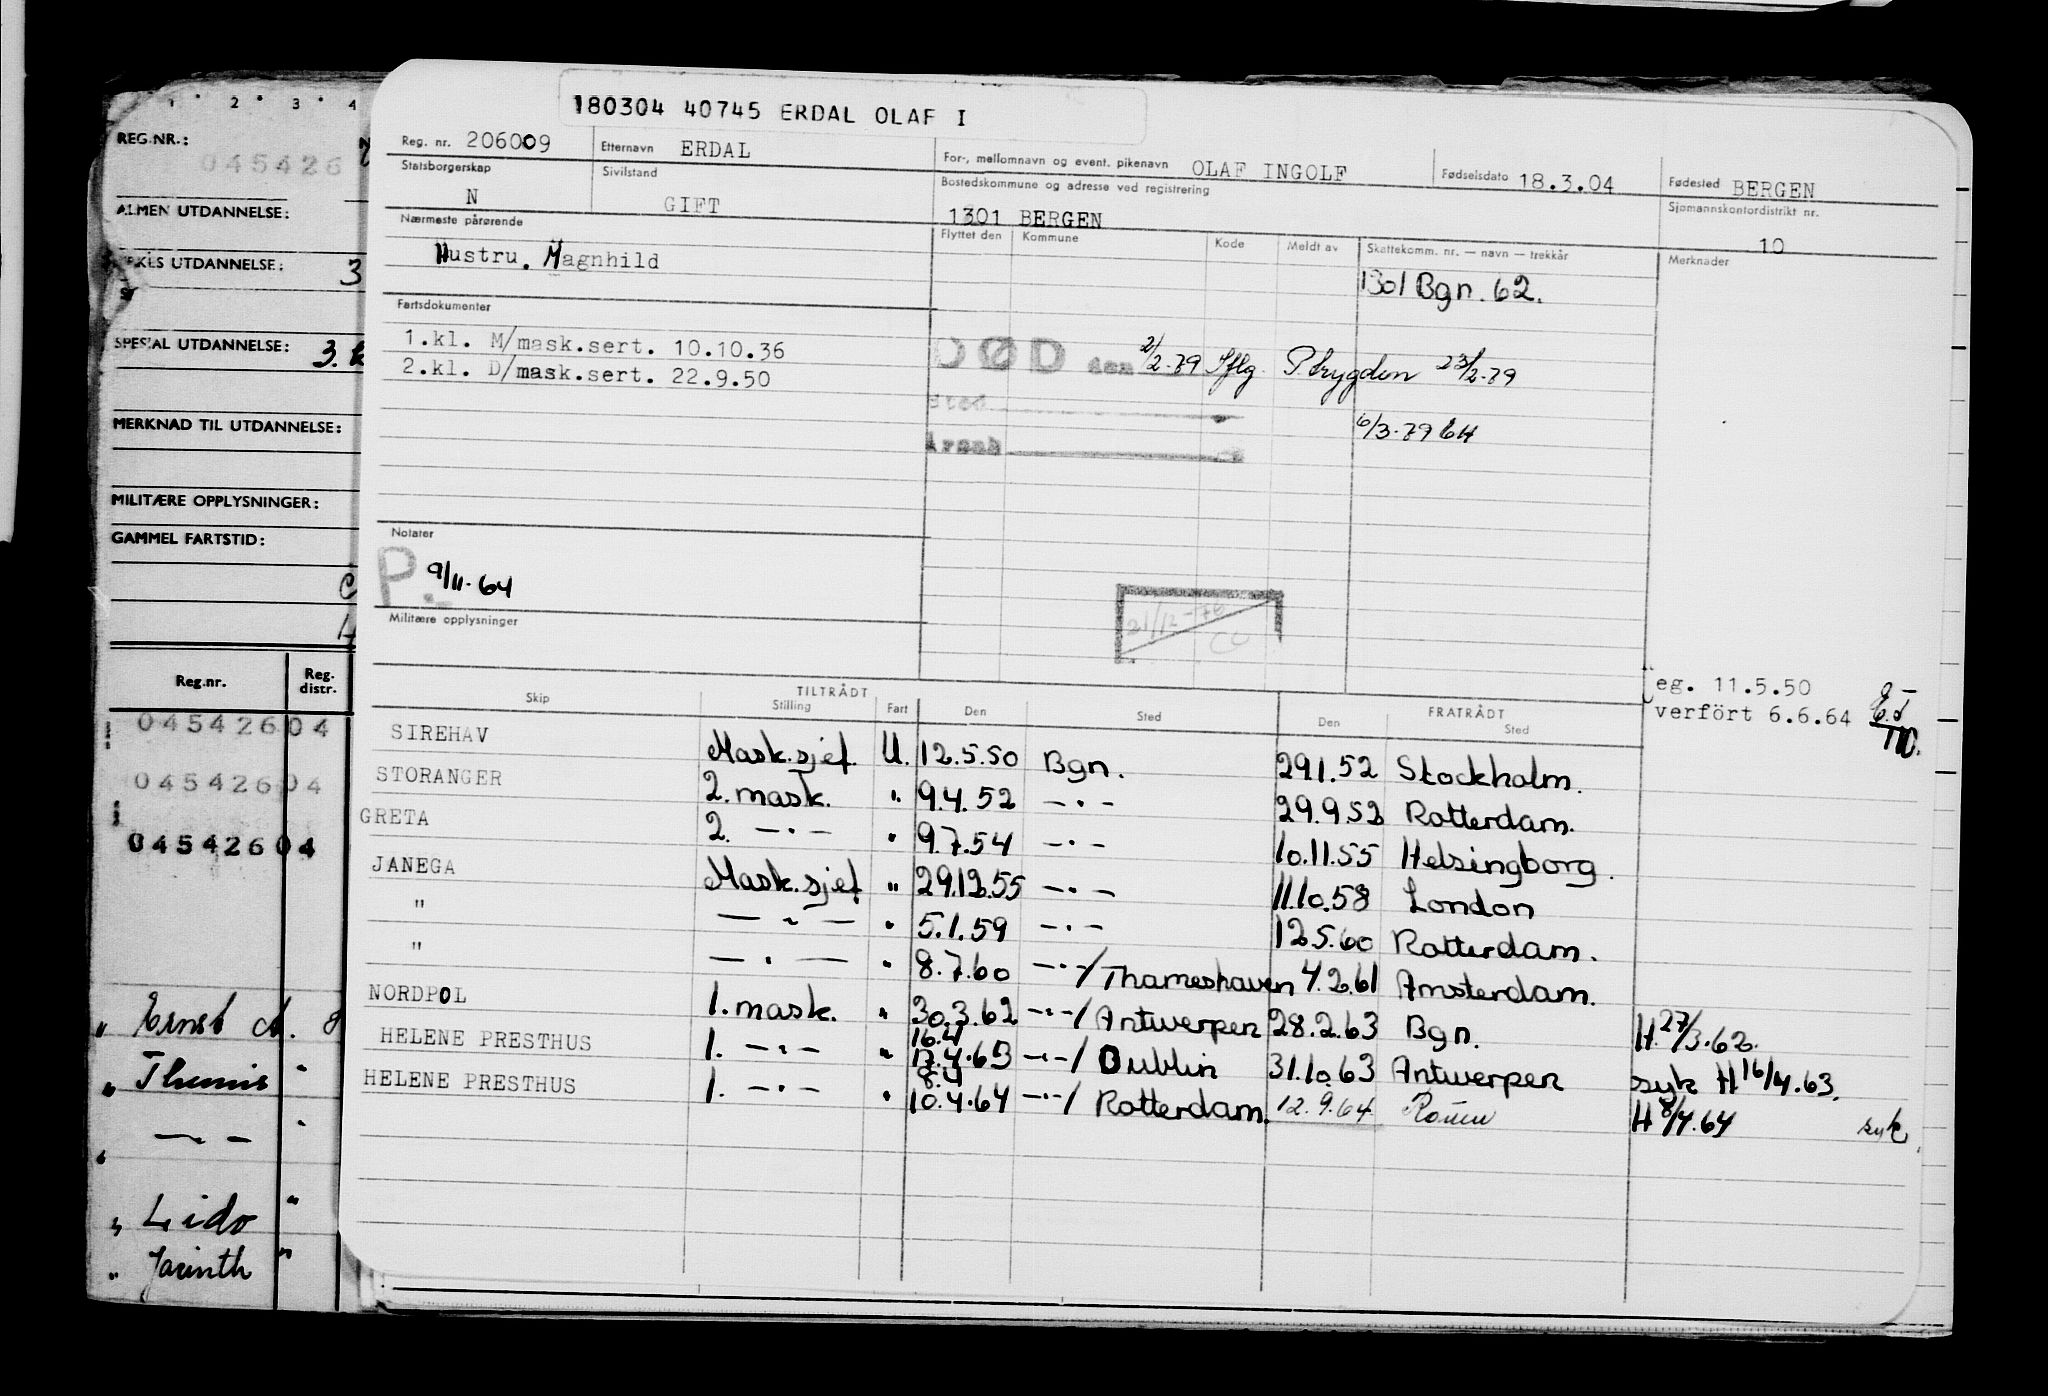 180304 40745 ERDAL OLAF I
Reg. nr. 206009 Etternavn ERDAL For-, mellomnavn og event. pikenavn OLAF INGOLF Fødselsdato 18.3.04 Fødested BERGEN
Statsborgerskap N Sivilstand GIFT Bostedskommune og adresse ved registrering 1301 BERGEN Sjømannskontordistrikt nr. 10
Nærmeste pårørende Flyttet den Kommune Kode Meldt av Skattekomm. nr. — navn — trekkår Merknader
Hustru. Magnhild
1301 Bgn. 62.
Fartsdokumenter
1.kl. M/mask.sert. 10.10.36
2.kl. D/mask.sert. 22.9.50
DØD den 2/2-79 Iflg. P.trygden 23/2-79
Sted
Årsak
6/3-79 EH
Notater
P. 9/11-64
21/12-76
CC
Militære opplysninger
eg. 11.5.50
verfört 6.6.64
Skip TILTRÅDT Stilling Fart Den Sted FRATRÅDT Den Sted
SIREHAV Mask.sjef. U. 12.5.50 Bgn. 29.1.52 Stockholm.
STORANGER 2. mask. " 9.4.52 —·— 29.9.52 Rotterdam.
GRETA 2. —·— " 9.7.54 —·— 10.11.55 Helsingborg.
JANEGA Mask.sjef " 29.12.55 —·— 11.10.58 London
" —"— " 5.1.59 —·— 12.5.60 Rotterdam.
" —·— " 8.7.60 —·—/Thameshaven 4.2.61 Amsterdam.
NORDPOL 1. mask. " 30.3.62 —·—/Antwerpen 28.2.63 Bgn. H.27/3.62.
HELENE PRESTHUS 1. —·— " 16.4 17.4.63 —·—/ Dublin 31.10.63 Antwerpen syk H 16/4.63.
HELENE PRESTHUS 1. —·— " 8.4 10.4.64 —·—/ Rotterdam. 12.9.64 Rouen H 8/4.64 syk
1 2 3 4
REG.NR.:
045426
ALMEN UTDANNELSE:
UTDANNELSE: 3
SPESIAL UTDANNELSE: 3.k
MERKNAD TIL UTDANNELSE:
MILITÆRE OPPLYSNINGER:
GAMMEL FARTSTID:
Reg.nr. Reg. distr.
04542604
04542604
04542604
" Ernst A. 8
" Themis "
" —·— "
" Lido "
" Jacinth "